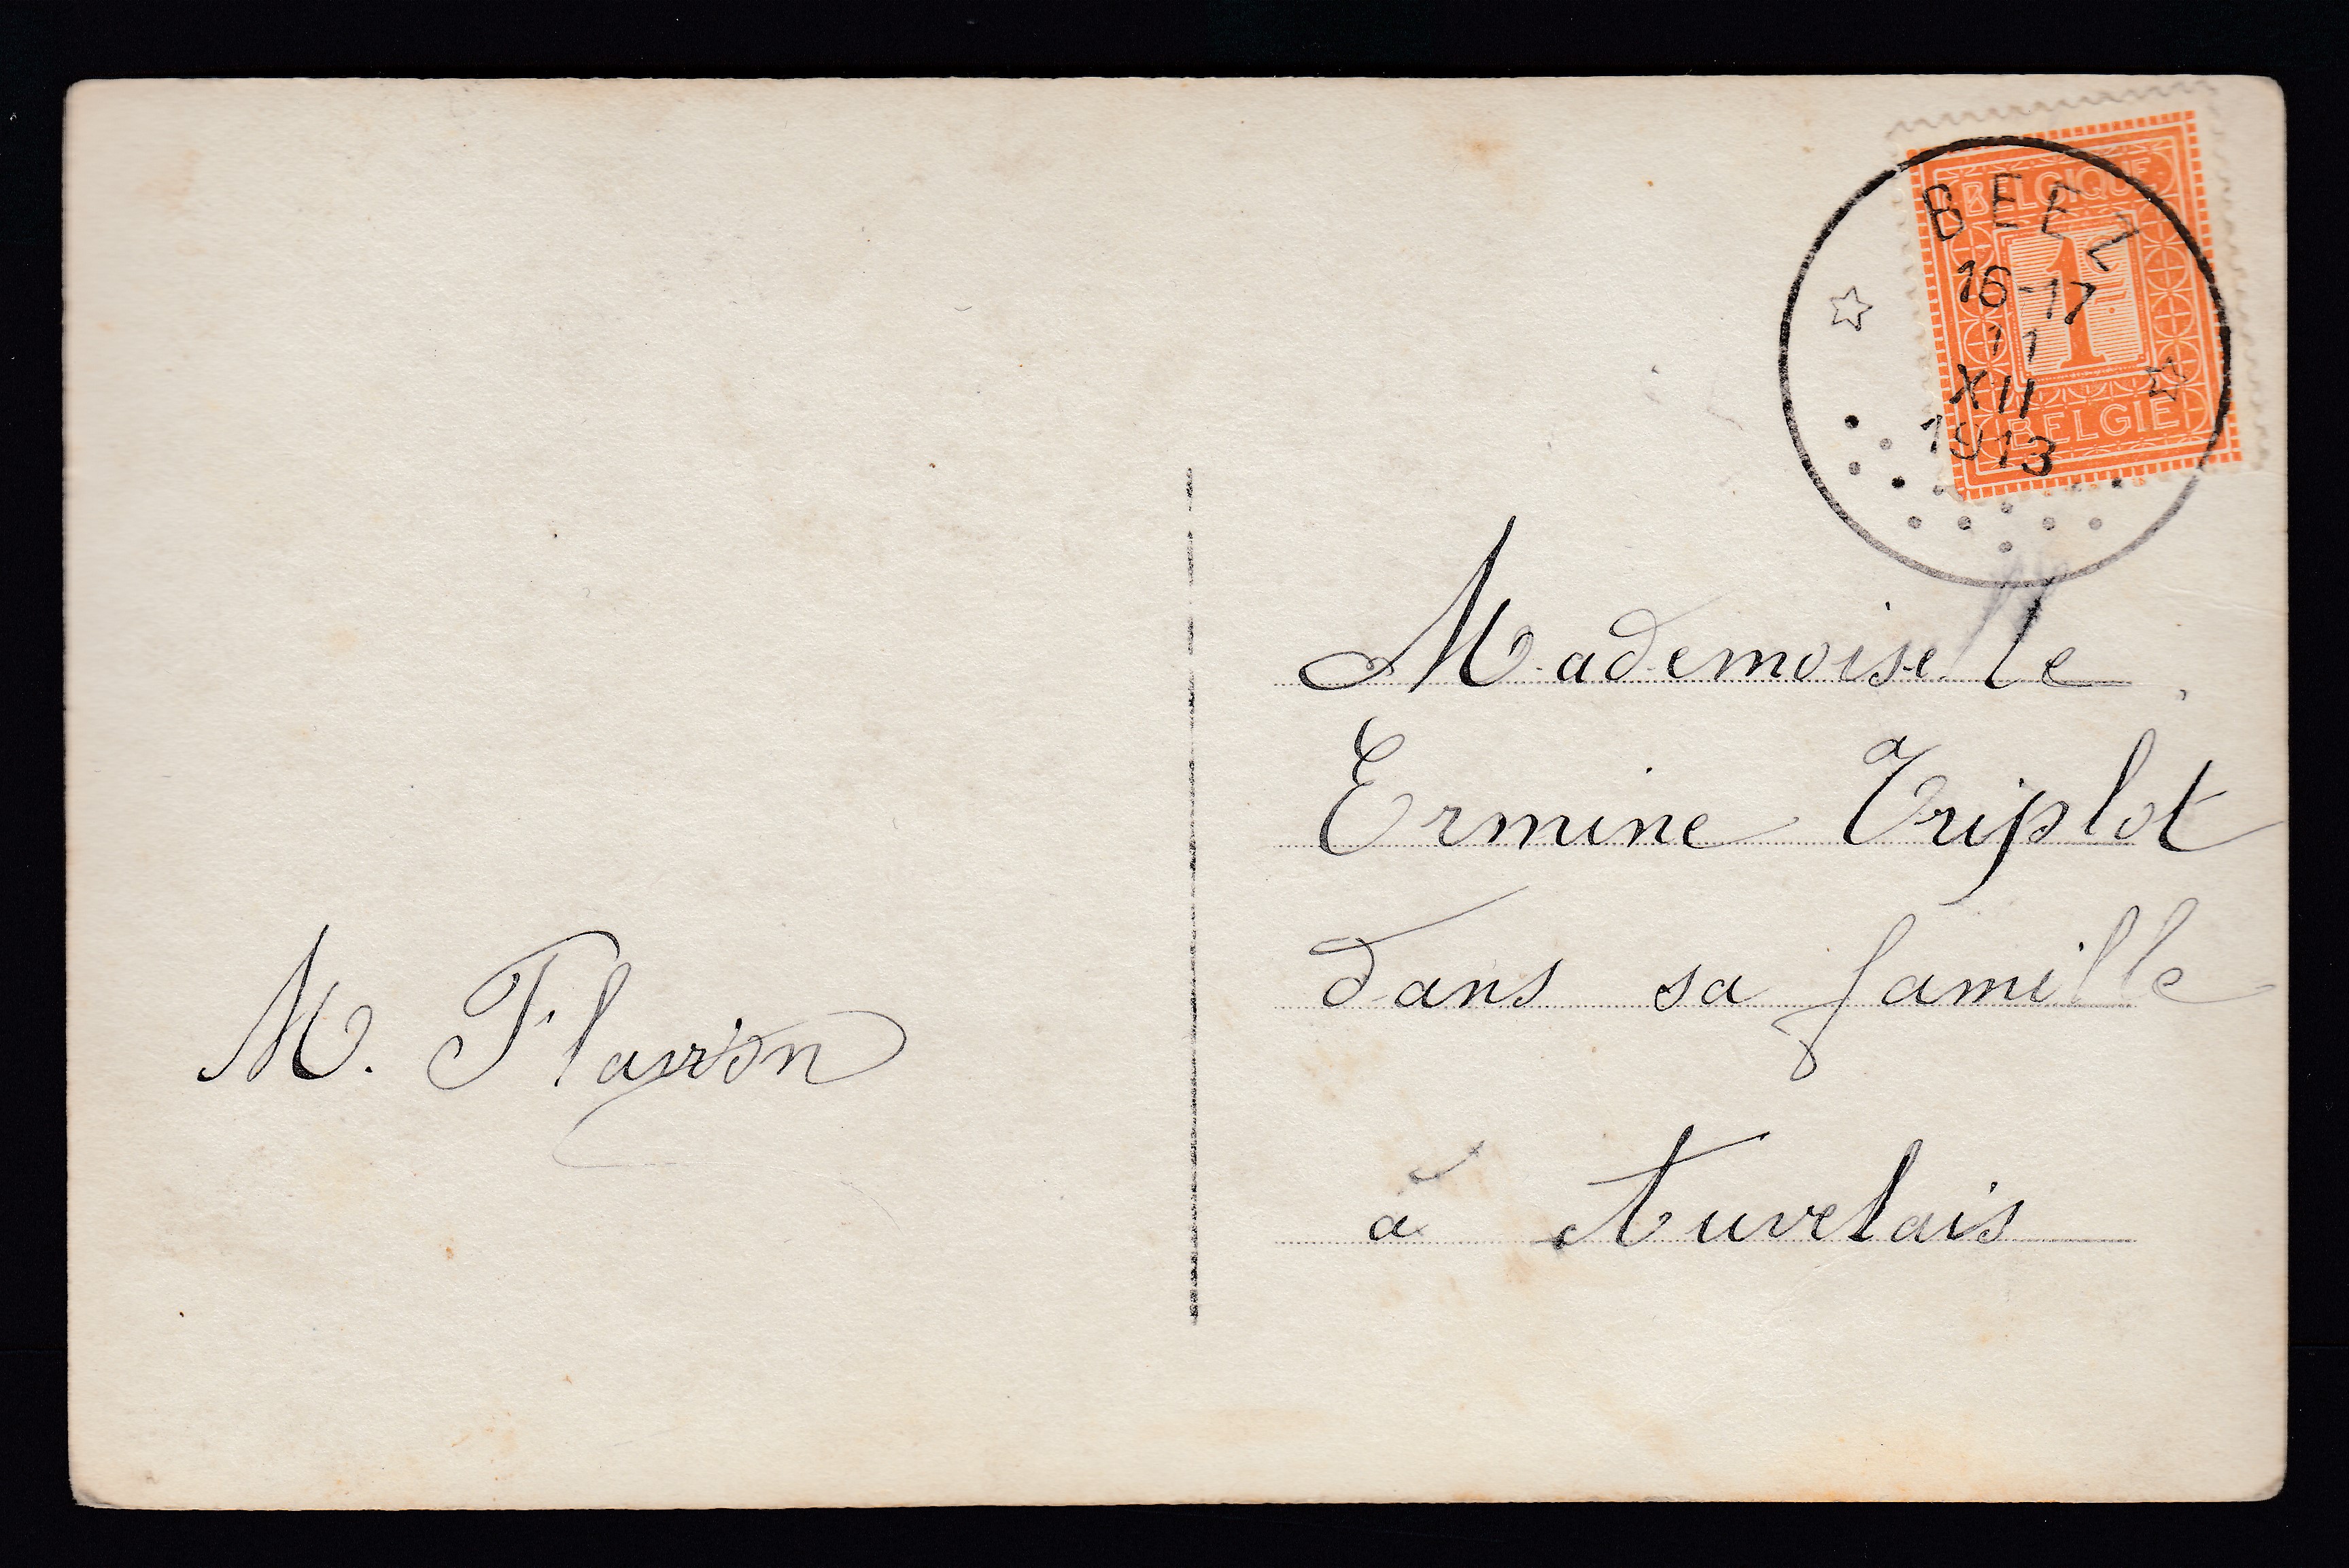 BELGIQUE
1c
BELGIË
BEEZ
16-17
11
XII
1913
Mademoiselle
Ermine Triplot
dans sa famille
à Auvelais
M. Flavion